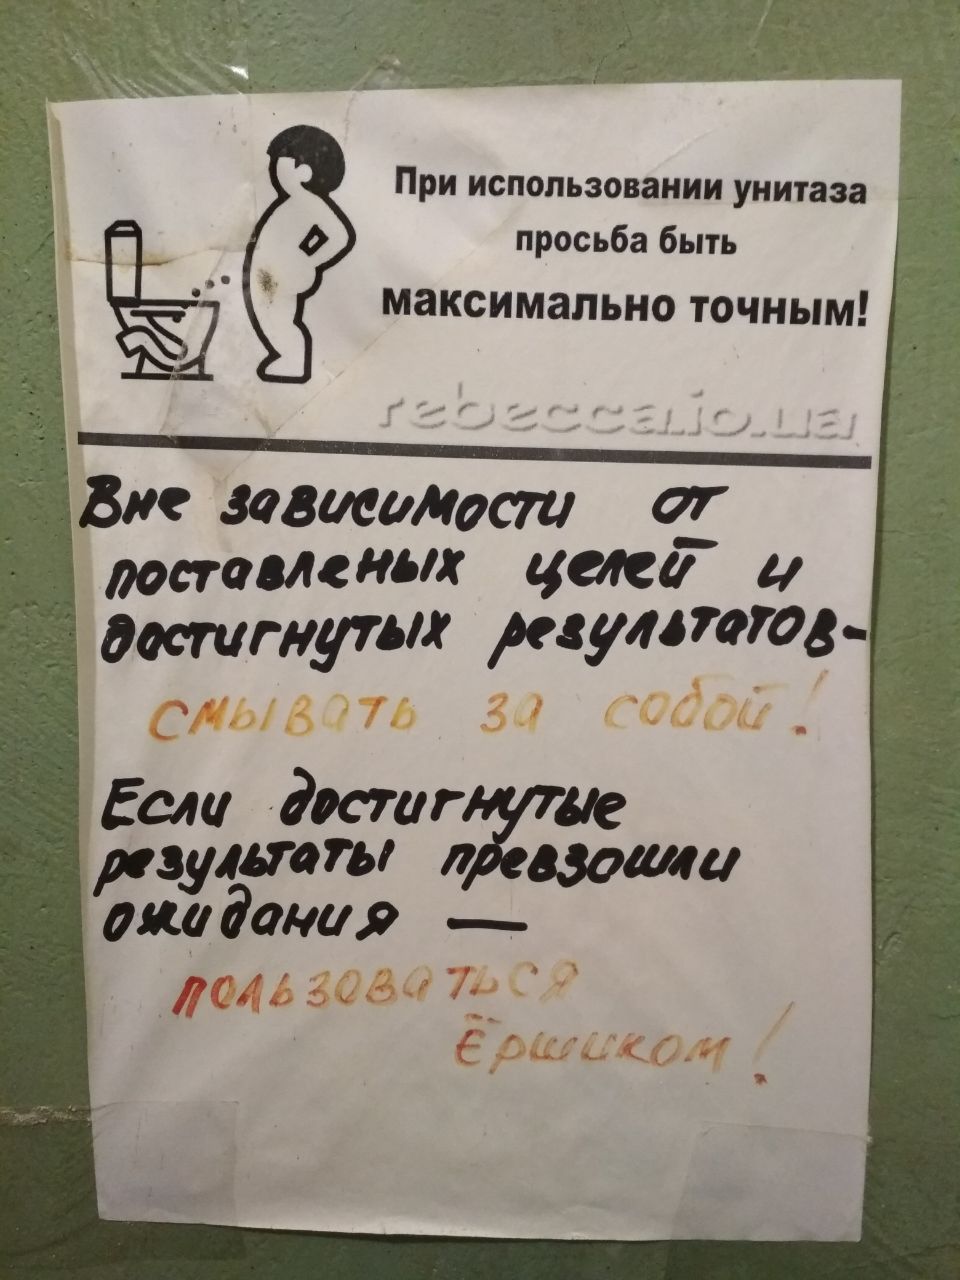 При использовании унитаза
просьба быть
максимально точным!
rebecca.io.ua
Вне зависимости от
поставленых целей и
достигнутых результатов-
смывать за собой!
Если достигнутые
результаты превзошли
ожидания —
пользоваться
Ёршиком!